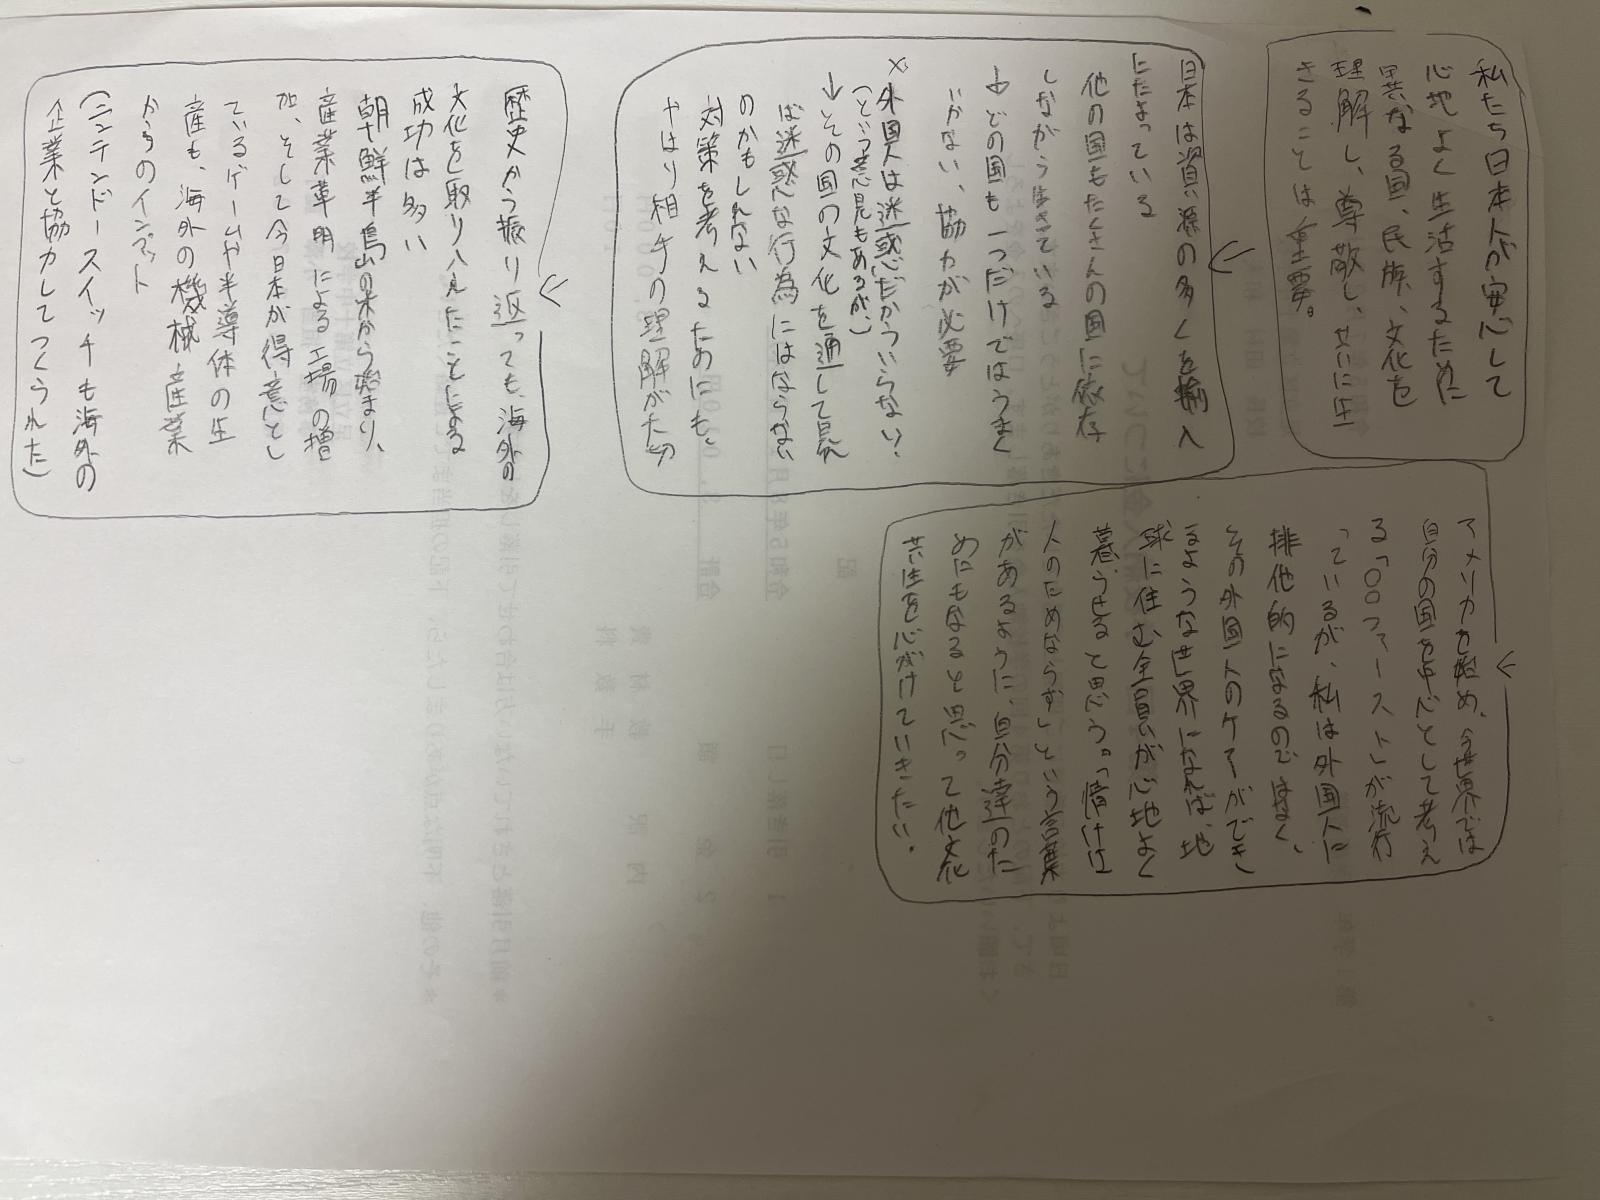 私たち日本人が安心して
心地よく生活するために
異なる国、民族、文化を
理解し、尊敬し、共に生
きることは重要。
日本は資源の多くを輸入
にたよっている
他の国もたくさんの国に依存
しながら生きている
↓どの国も一つだけではうまく
いかない、協力が必要
※外国人は迷惑だからいらない、
(という意見もあるが、)
↓その国の文化を通して見れ
ば迷惑な行為にはならない
のかもしれない
対策を考えるためにも、
やはり相手の理解が大切
歴史から振り返っても、海外の
文化を取り入れたことによる
成功は多い
朝鮮半島の米から始まり、
産業革明による工場の増
加、そして今日本が得意とし
ているゲームや半導体の生
産も、海外の機械産業
からのインプット
(ニンテンドースイッチも海外の
企業と協力してつくられた)
アメリカを始め、今世界では
自分の国を中心として考え
る「〇〇ファースト」が流行
っているが、私は外国人に
排他的になるのではなく、
その外国人のケアができ
るような世界になれば、地
球に住む全員が心地よく
暮らせると思う。「情けは
人のためならず」という言葉
があるように、自分達のた
めにもなると思って他文化
共生を心がけていきたい。